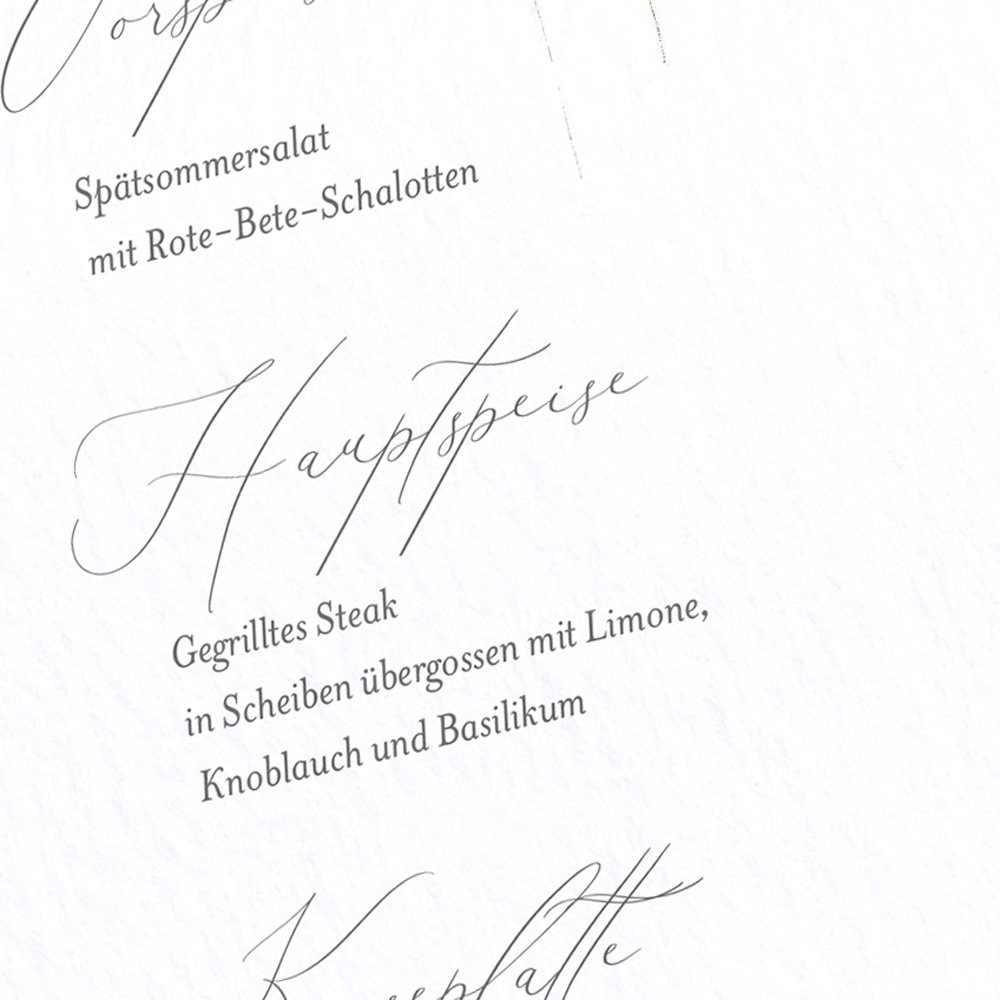 Spätsommersalat
mit Rote-Bete-Schalotten
Hauptspeise
Gegrilltes Steak
in Scheiben übergossen mit Limone,
Knoblauch und Basilikum